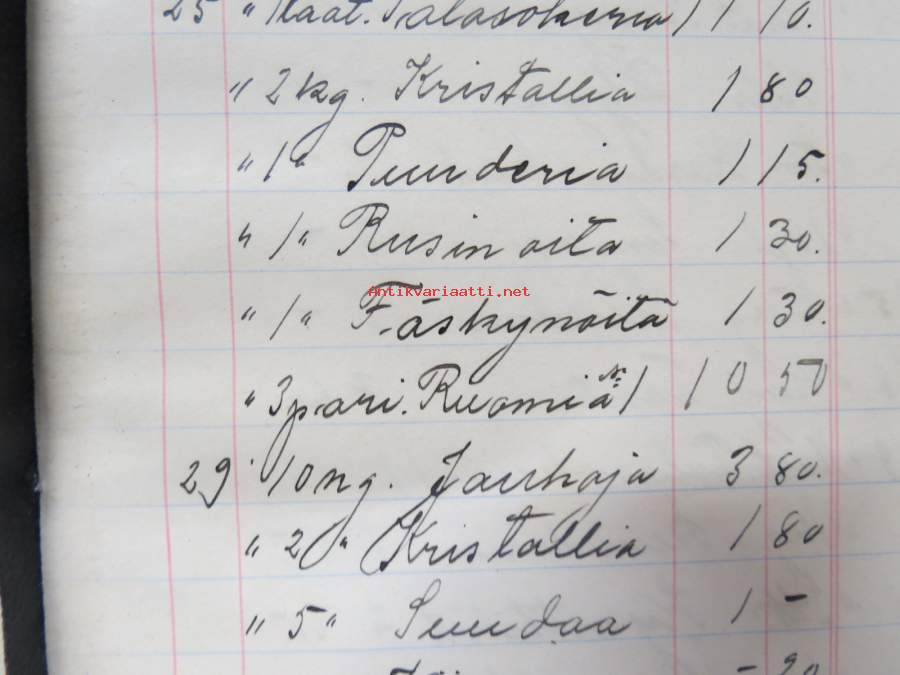 25 " laat. Palasokeria 1 10.
" 2 kg. Kristallia 1 80
" 1 " Puuderia 1 15.
" 1 " Rusinoita 1 30.
Antikvariaatti.net
" 1 " Fäskynöitä 1 30.
" 3 pari. Ruomia № 1 10 50
29 10 ng. Jauhoja 3 80.
" 2 " Kristallia 1 80
" 5 " Suudaa 1 -
- 20